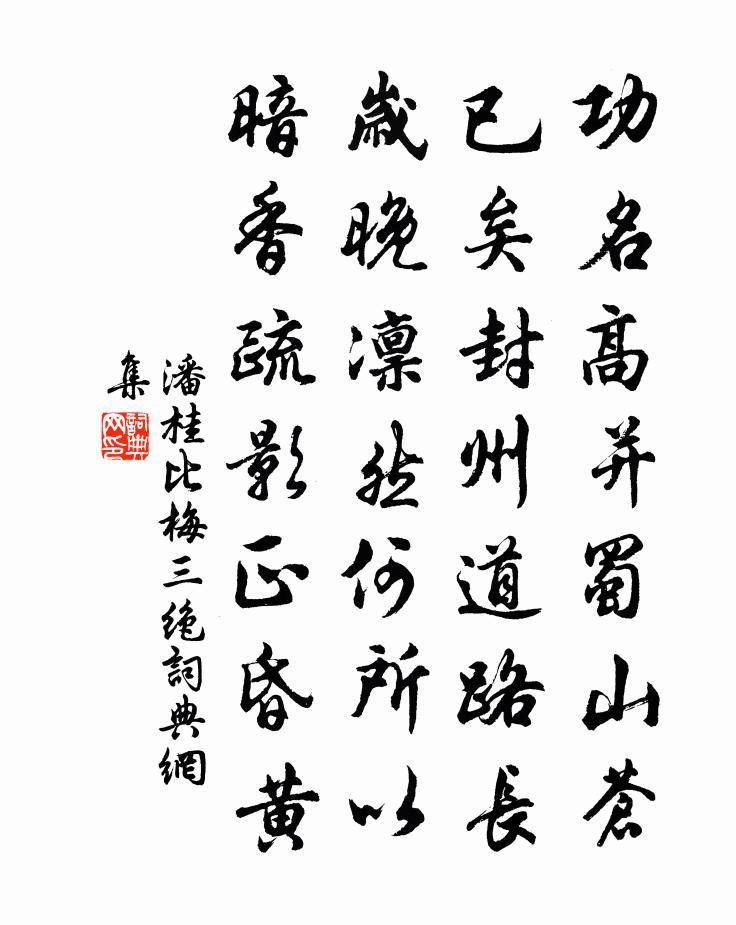 功名高并蜀山蒼
已矣封州道路長
歲晚凛然何所以
暗香疏影正昏黃
潘桂比梅三絶詞典網
集
詞典
网印